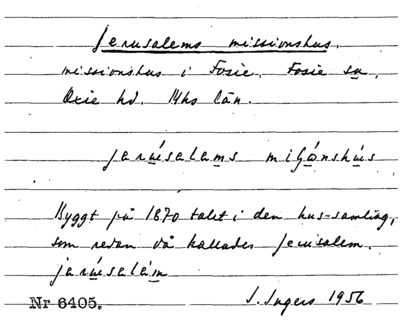 Jerusalems missionshus.
missionshus i Fosie, Fosie sn,
Oxie hd. Mhs län.
jarúsalams miʃónshús
Byggt på 1870 talet i den hus-samling,
som redan då kallades Jerusalem.
jarúsalám
Nr 6405. I. Ingers 1956